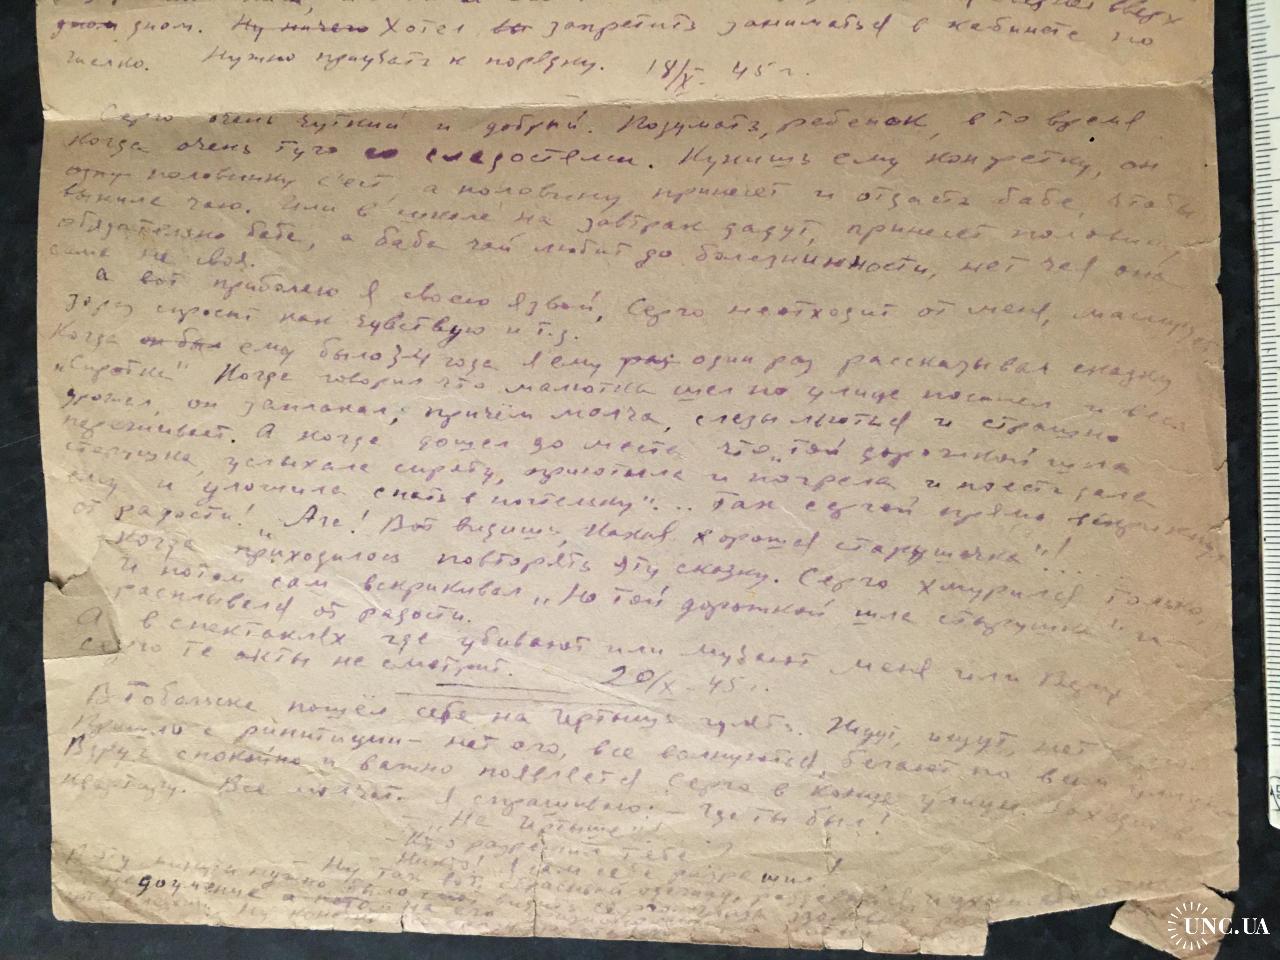 вверх
дном дном. Ну ничего Хотел вы запретить заниматься в кабинете но
жалко. Нужно приучать к порядку. 18/X 45 г.
Серго очень чуткий и добрый. Подумать, ребенок, в то время
когда очень туго со сладостями. Купишь ему конфетку, он
одну половинку съест, а половину принесет и отдаст бабе, чтобы
выпила чаю. Или в школе на завтрак дадут, принесет половину
обязательно бабе, а баба чай любит до болезнинности, нет чая она
сама не своя.
А вот приболею я своею язвой, Серго неотходит от меня,
раз спросит как чувствую и т.д.
Когда он был ему было 3-4 года я ему раз один раз рассказывал сказку
„Сиротка" Когда говорил что малютка шел по улице посинел и весь
дрожал, он заплакал, причём молча, слезы льються и страшно
переживает. А когда дошел до места что „той дорожкой шла
старушка, услыхала сироту, приютила и погрела и поесть дала
ему и уложила спать в постельку"... Так Сергей прямо вскрикнул
от радости! „Ага! Вот видишь, какая хорошая старушечка"!
Когда приходилось повторять эту сказку. Серго хмурился только,
и потом сам вскрикивал „Но той дорожкой шла старушка" и
расплывался от радости.
А в спектаклях где убивают или мучают меня или
Серго те акты не смотрит. 20/X-45 г.
В Тобольске пошёл себе на Иртышь гулять. Ждут, ищут, нет его.
Пришло с репитиции - нет его, все волнуються, бегают по всем
Вдруг спокойно и важно появляется Серго в конце улицы. Заходит в
квартиру. Все молчат. Я спрашиваю: - Где ты был!
- „На Иртыше"!
- Кто разрешил тебе?
- Никто! Я сам себе разрешил!
Ну так вот,
нужно было
доучение а потом на его
Ну
UNC.UA